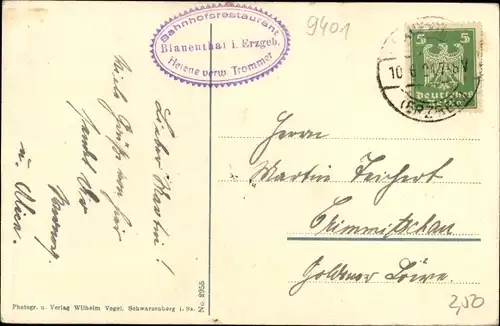 Bahnhofsrestaurant
Blauenthal i. Erzgeb.
Helene verw. Trommer
9401
5 5
10.6.
deutsches
(ERZGEB
Lieber Martin!
Viele Grüße von hier
sendet Dir
u.
Herrn
Martin Teichert
Crimmitschau
Goldner Löwe.
2,50
No. 8955
Photogr. u. Verlag Wilhelm Vogel, Schwarzenberg i. Sa.